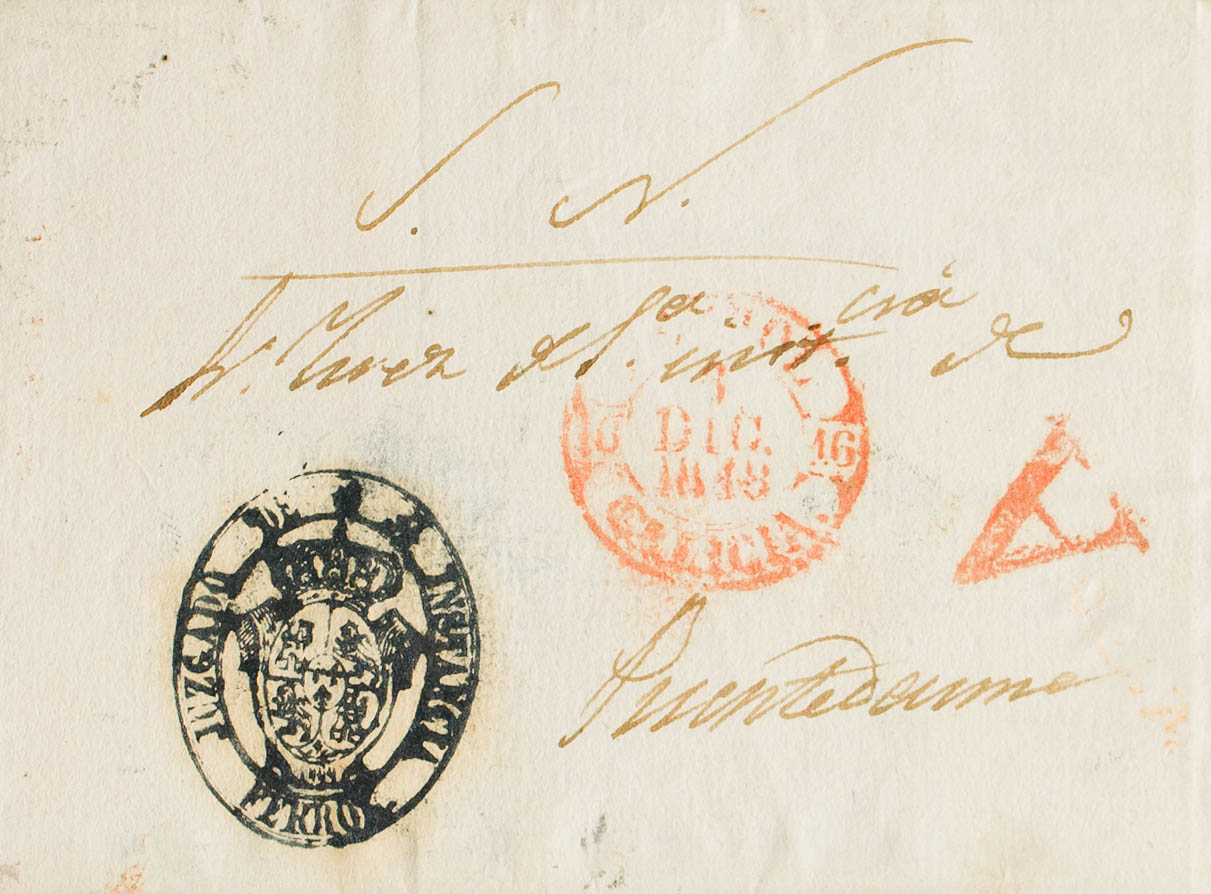 S. N.
Sr. Juez de 1.a inst.cia de
Puentedeume
16 DIC. 16
1848
GALICIA.
JUZGADO DE 1.A INSTANCIA
FERROL